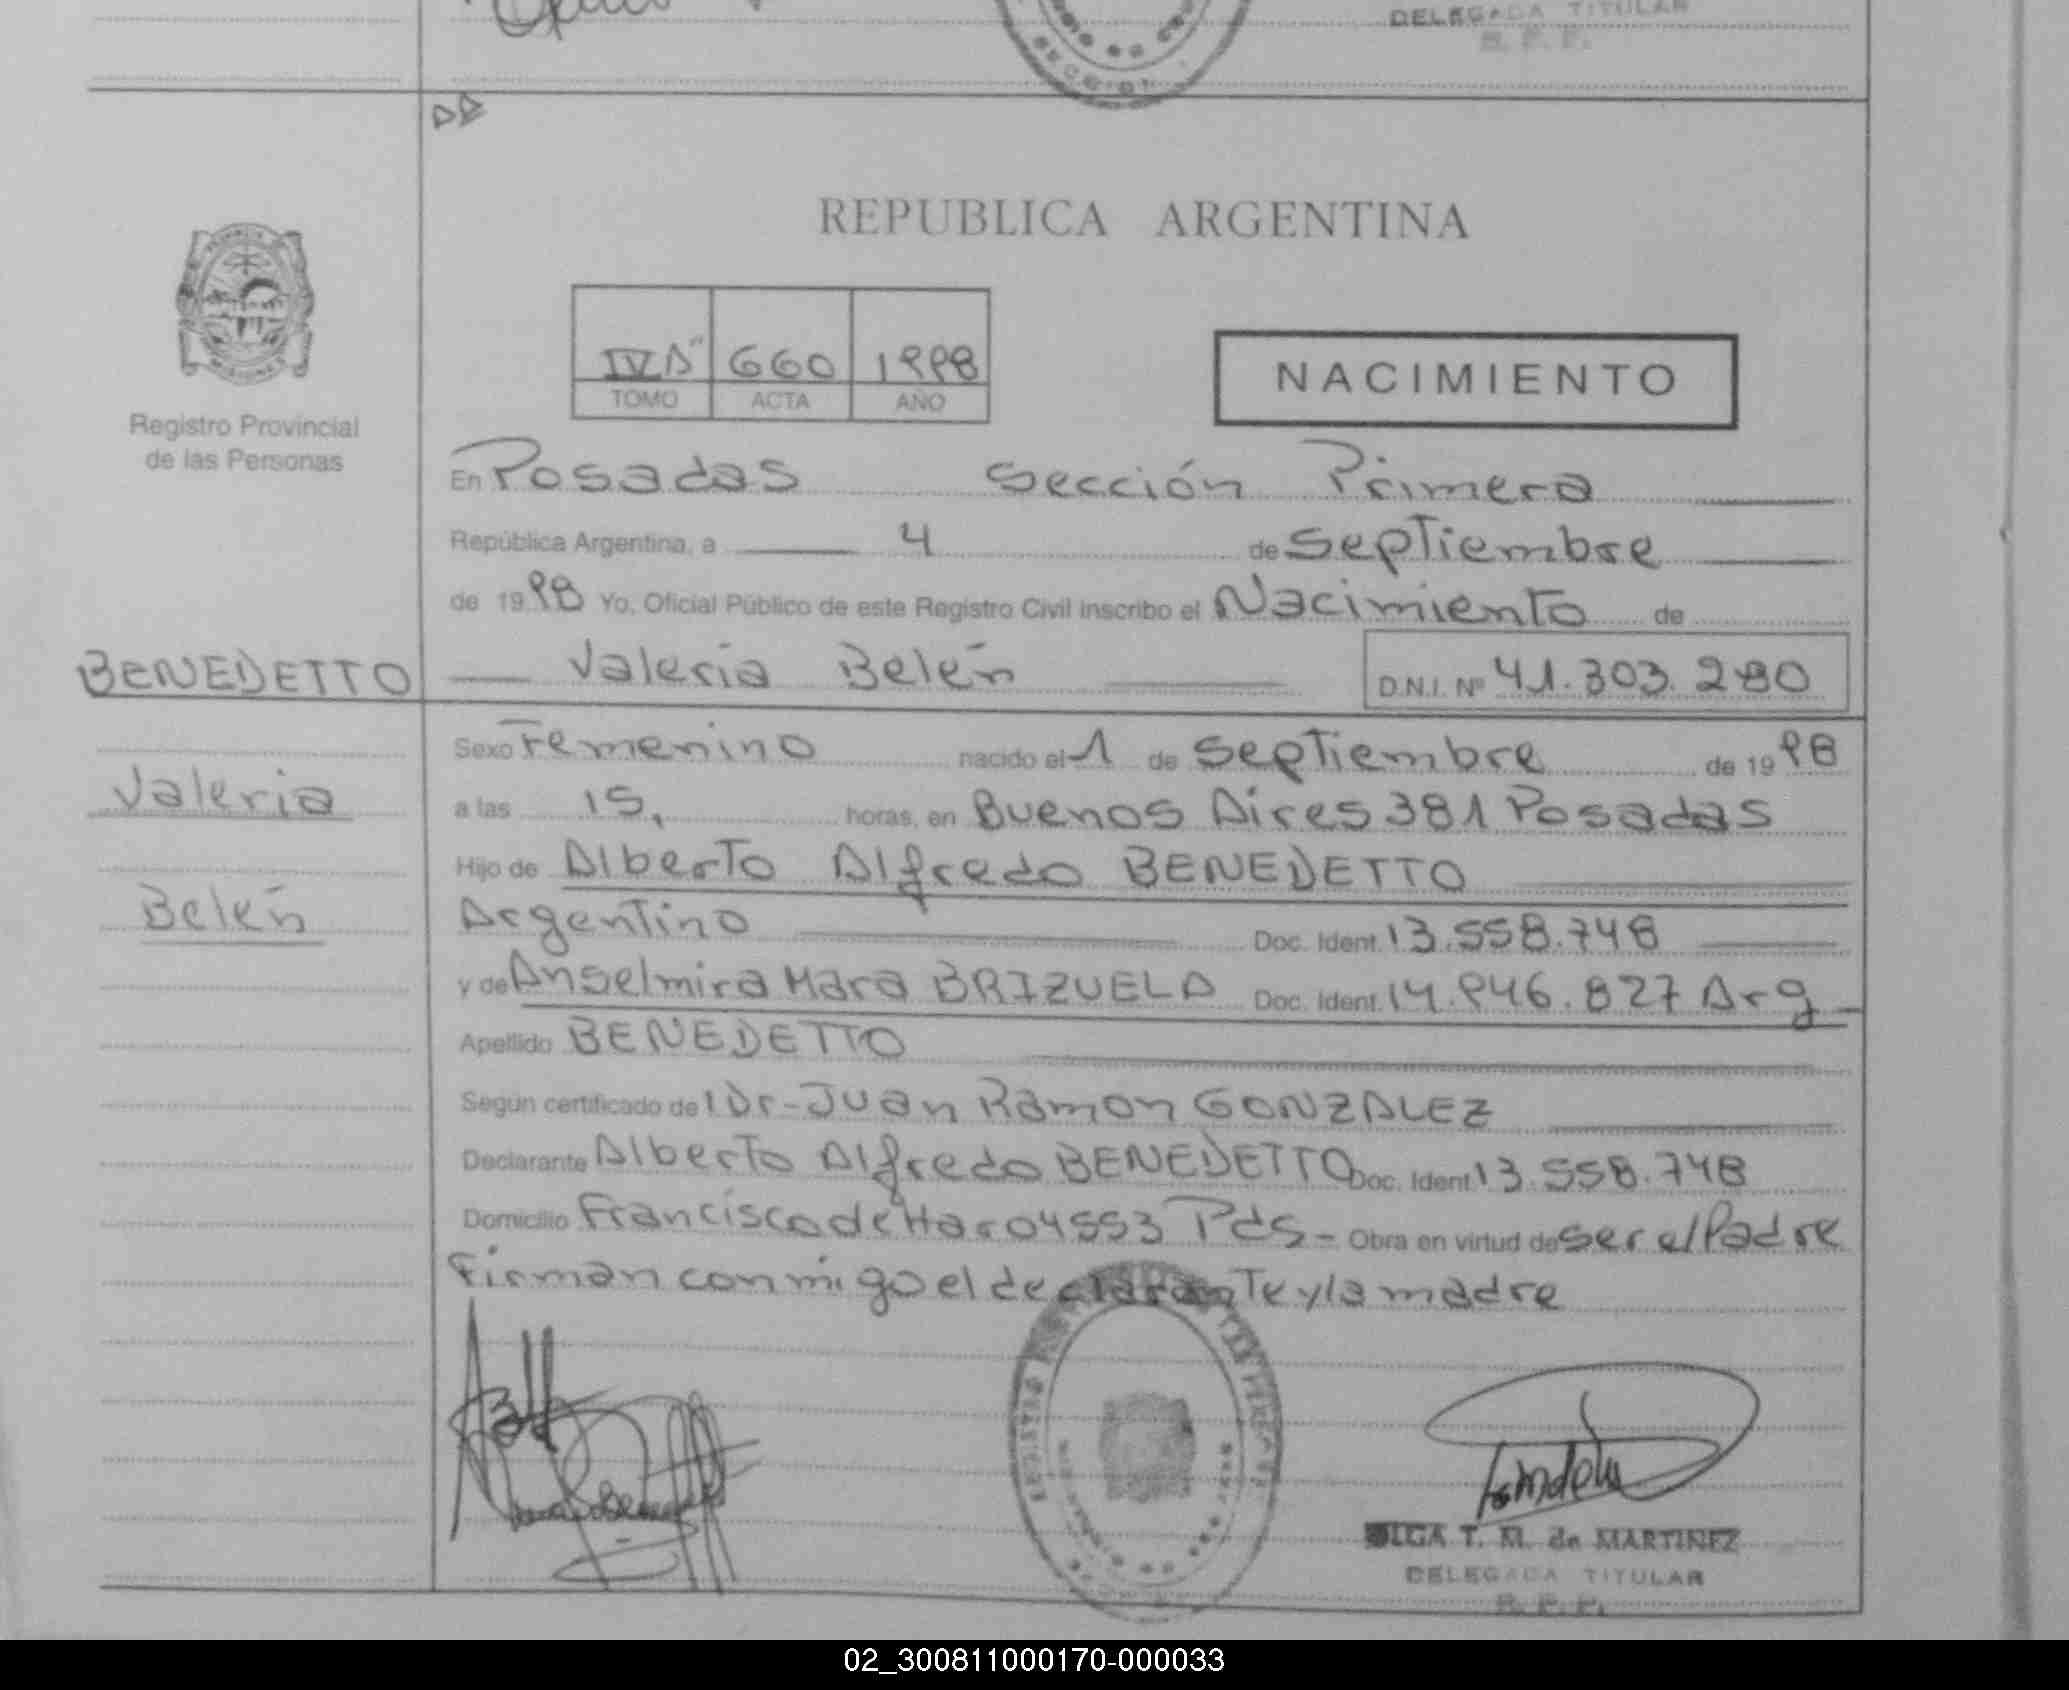 DELEGADA TITULAR
R. P. P.
REPUBLICA ARGENTINA
IV A" 660 1998
TOMO ACTA AÑO
NACIMIENTO
Registro Provincial
de las Personas
En Posadas Sección Primera
República Argentina, a 4 de Septiembre
de 1998 Yo, Oficial Público de este Registro Civil inscribo el Nacimiento de
BENEDETTO Valeria Belén D.N.I. Nº 41.303.280
Sexo Femenino nacido el 1 de Septiembre de 1998
Valeria
a las 15, horas, en Buenos Aires 381 Posadas
Hijo de Alberto Alfredo BENEDETTO
Belén
Argentino Doc. Ident. 13.558.748
y de Anselmira Mara BRIZUELA Doc. Ident. 14.946.827 Arg
Apellido BENEDETTO
Según certificado del Dr-Juan Ramon GONZALEZ
Declarante Alberto Alfredo BENEDETTO Doc. Ident. 13.558.748
Domicilio Francisco de Haro 4553 Pds- Obra en virtud de ser el Padre
Firman conmigo el declarante y la madre
OLGA T. M. de MARTINEZ
DELEGADA TITULAR
R. P. P.
02_300811000170-000033